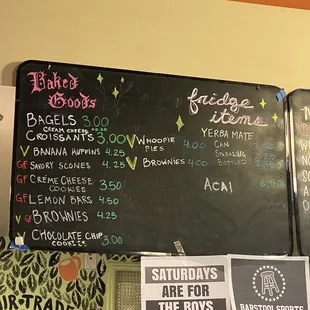 Baked
Goods
BAGELS 3.00
CREAM CHEESE +0.50
CROISSANTS 3.00
V BANANA MUFFINS 4.25
GF SAVORY SCONES 4.25
GF CRÉME CHEESE
COOKIES 3.50
GF LEMON BARS 4.50
V GF BROWNIES 4.25
V CHOCOLATE CHIP
COOKIES 3.00
fridge
items
V WHOOPIE
PIES 4.00
V BROWNIES 4.00
YERBA MATE
CAN
SPARKLING
BOTTLED
ACAI 6.50
SATURDAYS
ARE FOR
THE BOYS
BARSTOOL SPORTS